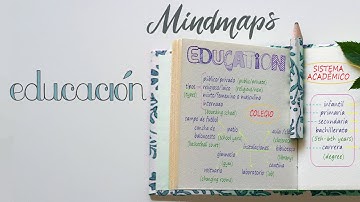 Mindmaps
educación
EDUCATION
público/privado (public/private)
tipos → religioso/laico (religious/non)
(types) mixto/femenino o masculino
internado
(boarding school)
COLEGIO
campo de fútbol
cancha de
baloncesto
(basketball court)
patio
(school yard)
instalaciones
gimnasio
(gym)
vestuario
(changing rooms)
laboratorio (lab)
SISTEMA
ACADÉMICO
infantil
primaria
secundaria
bachillerato
(5th-6th years)
carrera
(degree)